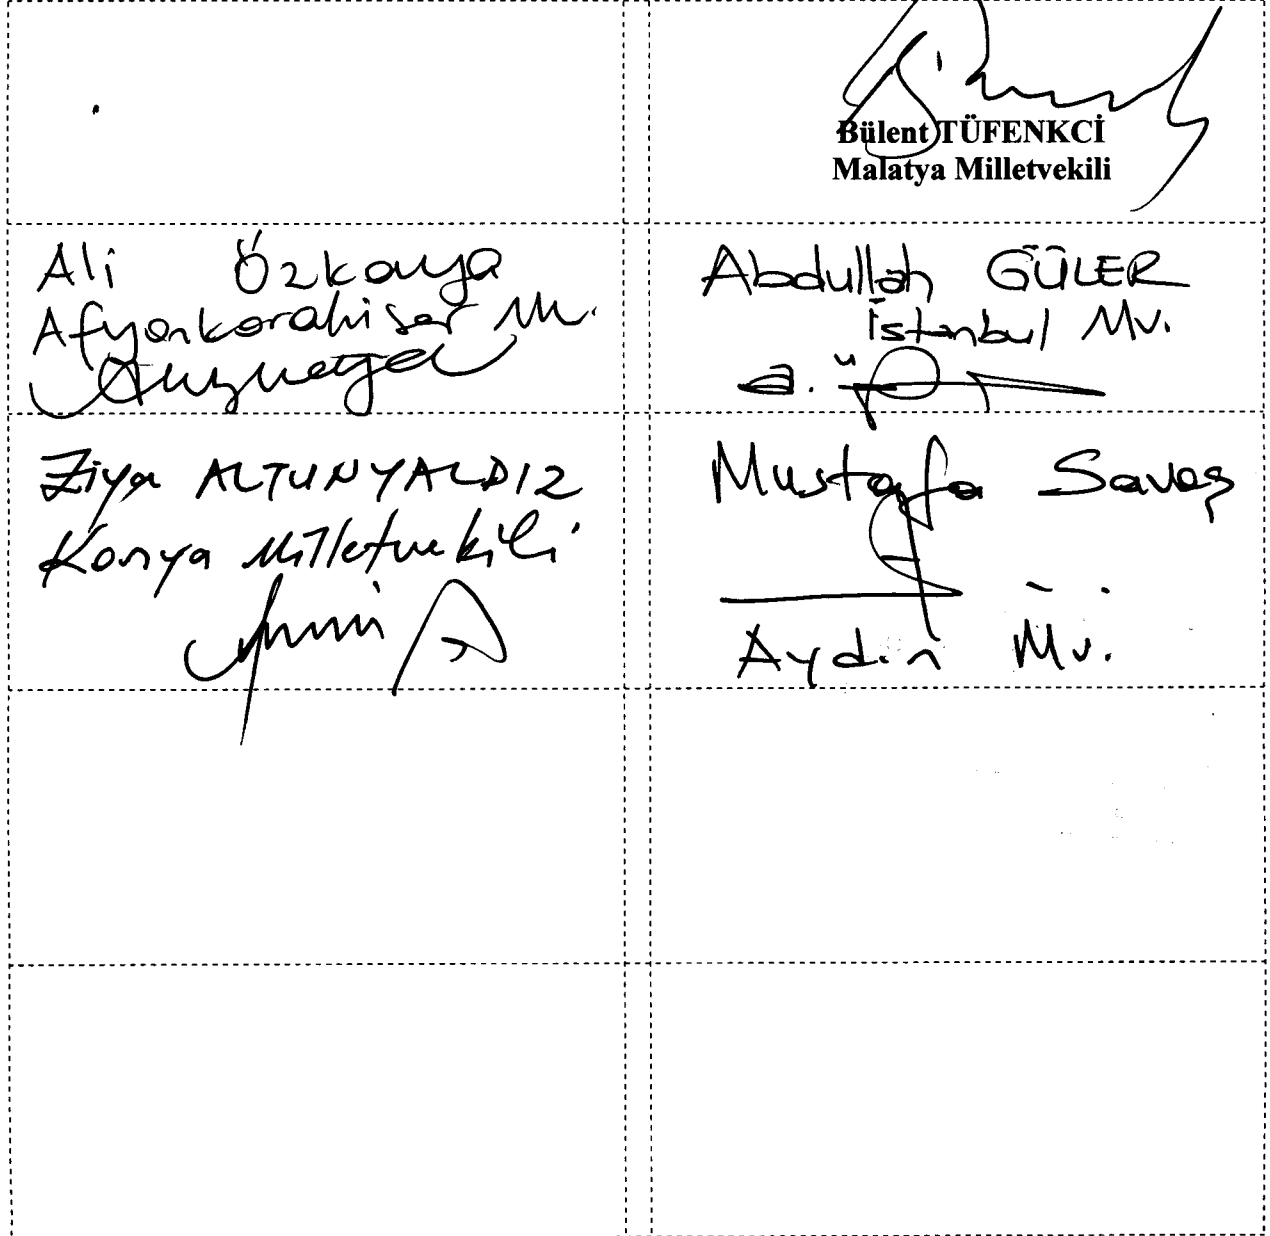 Bülent TÜFENKCİ
Malatya Milletvekili
Ali Özkaya
Afyonkarahisar M.
Abdullah GÜLER
İstanbul Mv.
Ziya ALTUNYALDIZ
Konya Milletvekili
Mustafa Savaş
Aydın Mv.